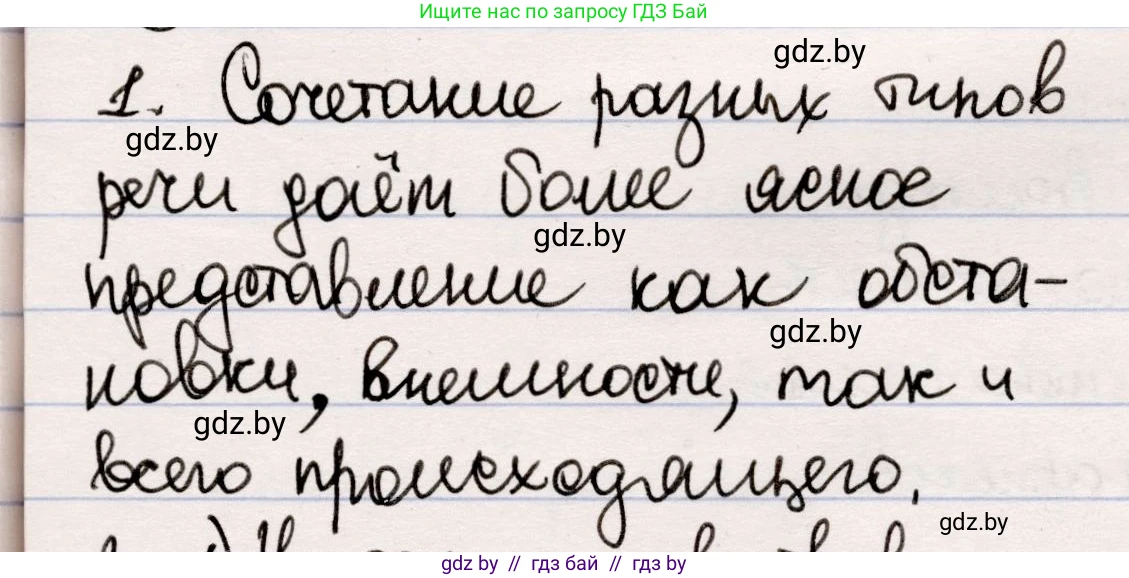 Ищите нас по запросу ГДЗ Бай
gdz.by
1. Сочетание разных типов
gdz.by
речи даёт более ясное
gdz.by
представление как обста-
gdz.by
новки, внешности, так и
gdz.by
всего происходящего.
gdz.by
gdz by // гдз бай // гдз by